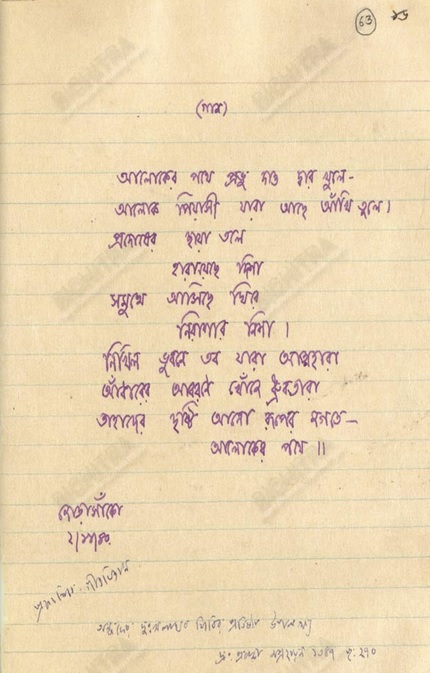 63
(গান)
আলোকের পথে প্রভু দাও দ্বার খুলে-
আলোক পিয়াসী যারা আছে আঁখি তুলে।
প্রদোষের ছায়া তলে
হারায়েছে দিশা
সমুখে আসিছে ঘিরে
নিরাশার নিশা।
নিখিল ভুবনে তব যারা আত্মহারা
আঁধারের আবরণে খোঁজে ধ্রুবতারা
তাহাদের দৃষ্টি আনো রূপের জগতে—
আলোকের পথে॥
জোড়াসাঁকো
গীতবিতান
BICHITRA